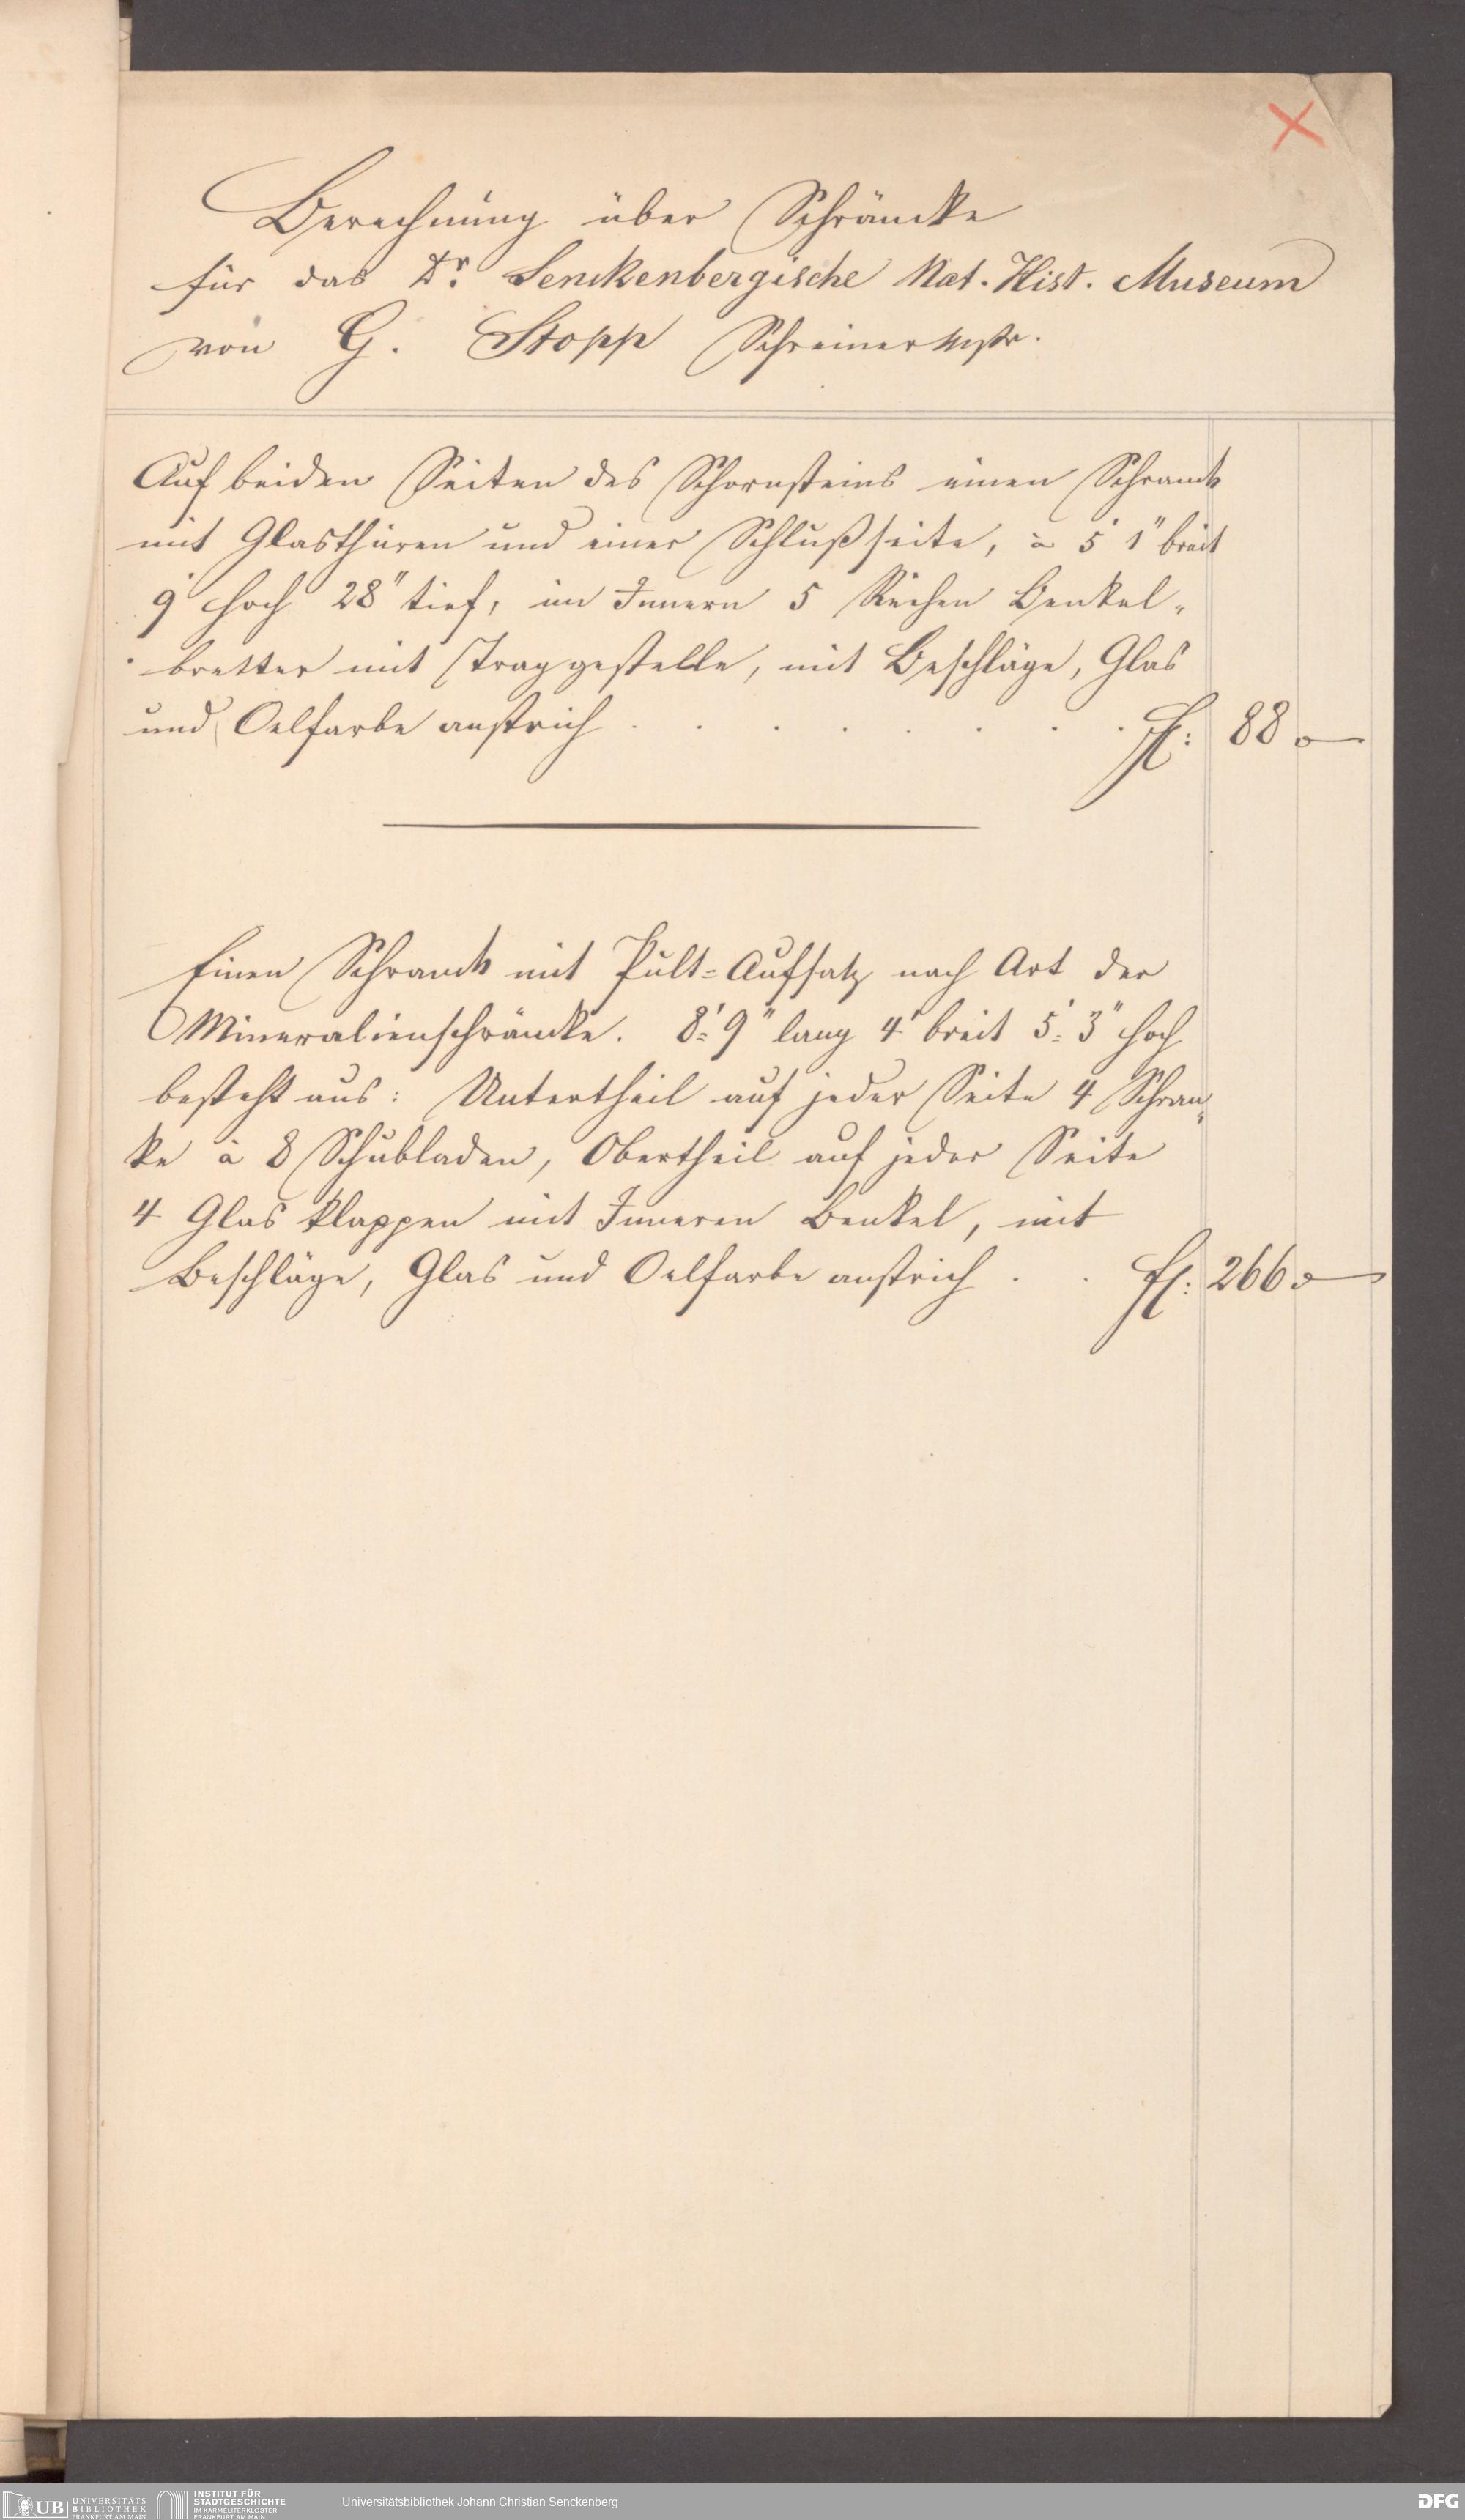 Berechnung über Schräncke
für das Dr. Senckenbergische Nat. Hist. Museum
von G. Stopp Schreinermstr.
Auf beiden Seiten des Schornsteins einen Schranck
mit Glasthüren und einer Schlußseite, à 5' 1" breit
9' hoch 28" tief, im Innern 5 Reihen Benkel-
bretter mit Traggestelle, mit Beschläge, Glas
und Oelfarbe anstrich . . . . . . . . fl: 88 -
Einen Schranck mit Pult=Aufsatz nach Art der
Mineralienschräncke. 8' 9" lang 4' breit 5' 3" hoch
besteht aus: Untertheil auf jeder Seite 4 Schran-
ke à 8 Schubladen, Obertheil auf jeder Seite
4 Glas klappen mit Inneren Benkel, mit
Beschläge, Glas und Oelfarbe anstrich . . fl: 266 -
UB UNIVERSITÄTS
BIBLIOTHEK
FRANKFURT AM MAIN
INSTITUT FÜR
STADTGESCHICHTE
IM KARMELITERKLOSTER
FRANKFURT AM MAIN
Universitätsbibliothek Johann Christian Senckenberg
DFG